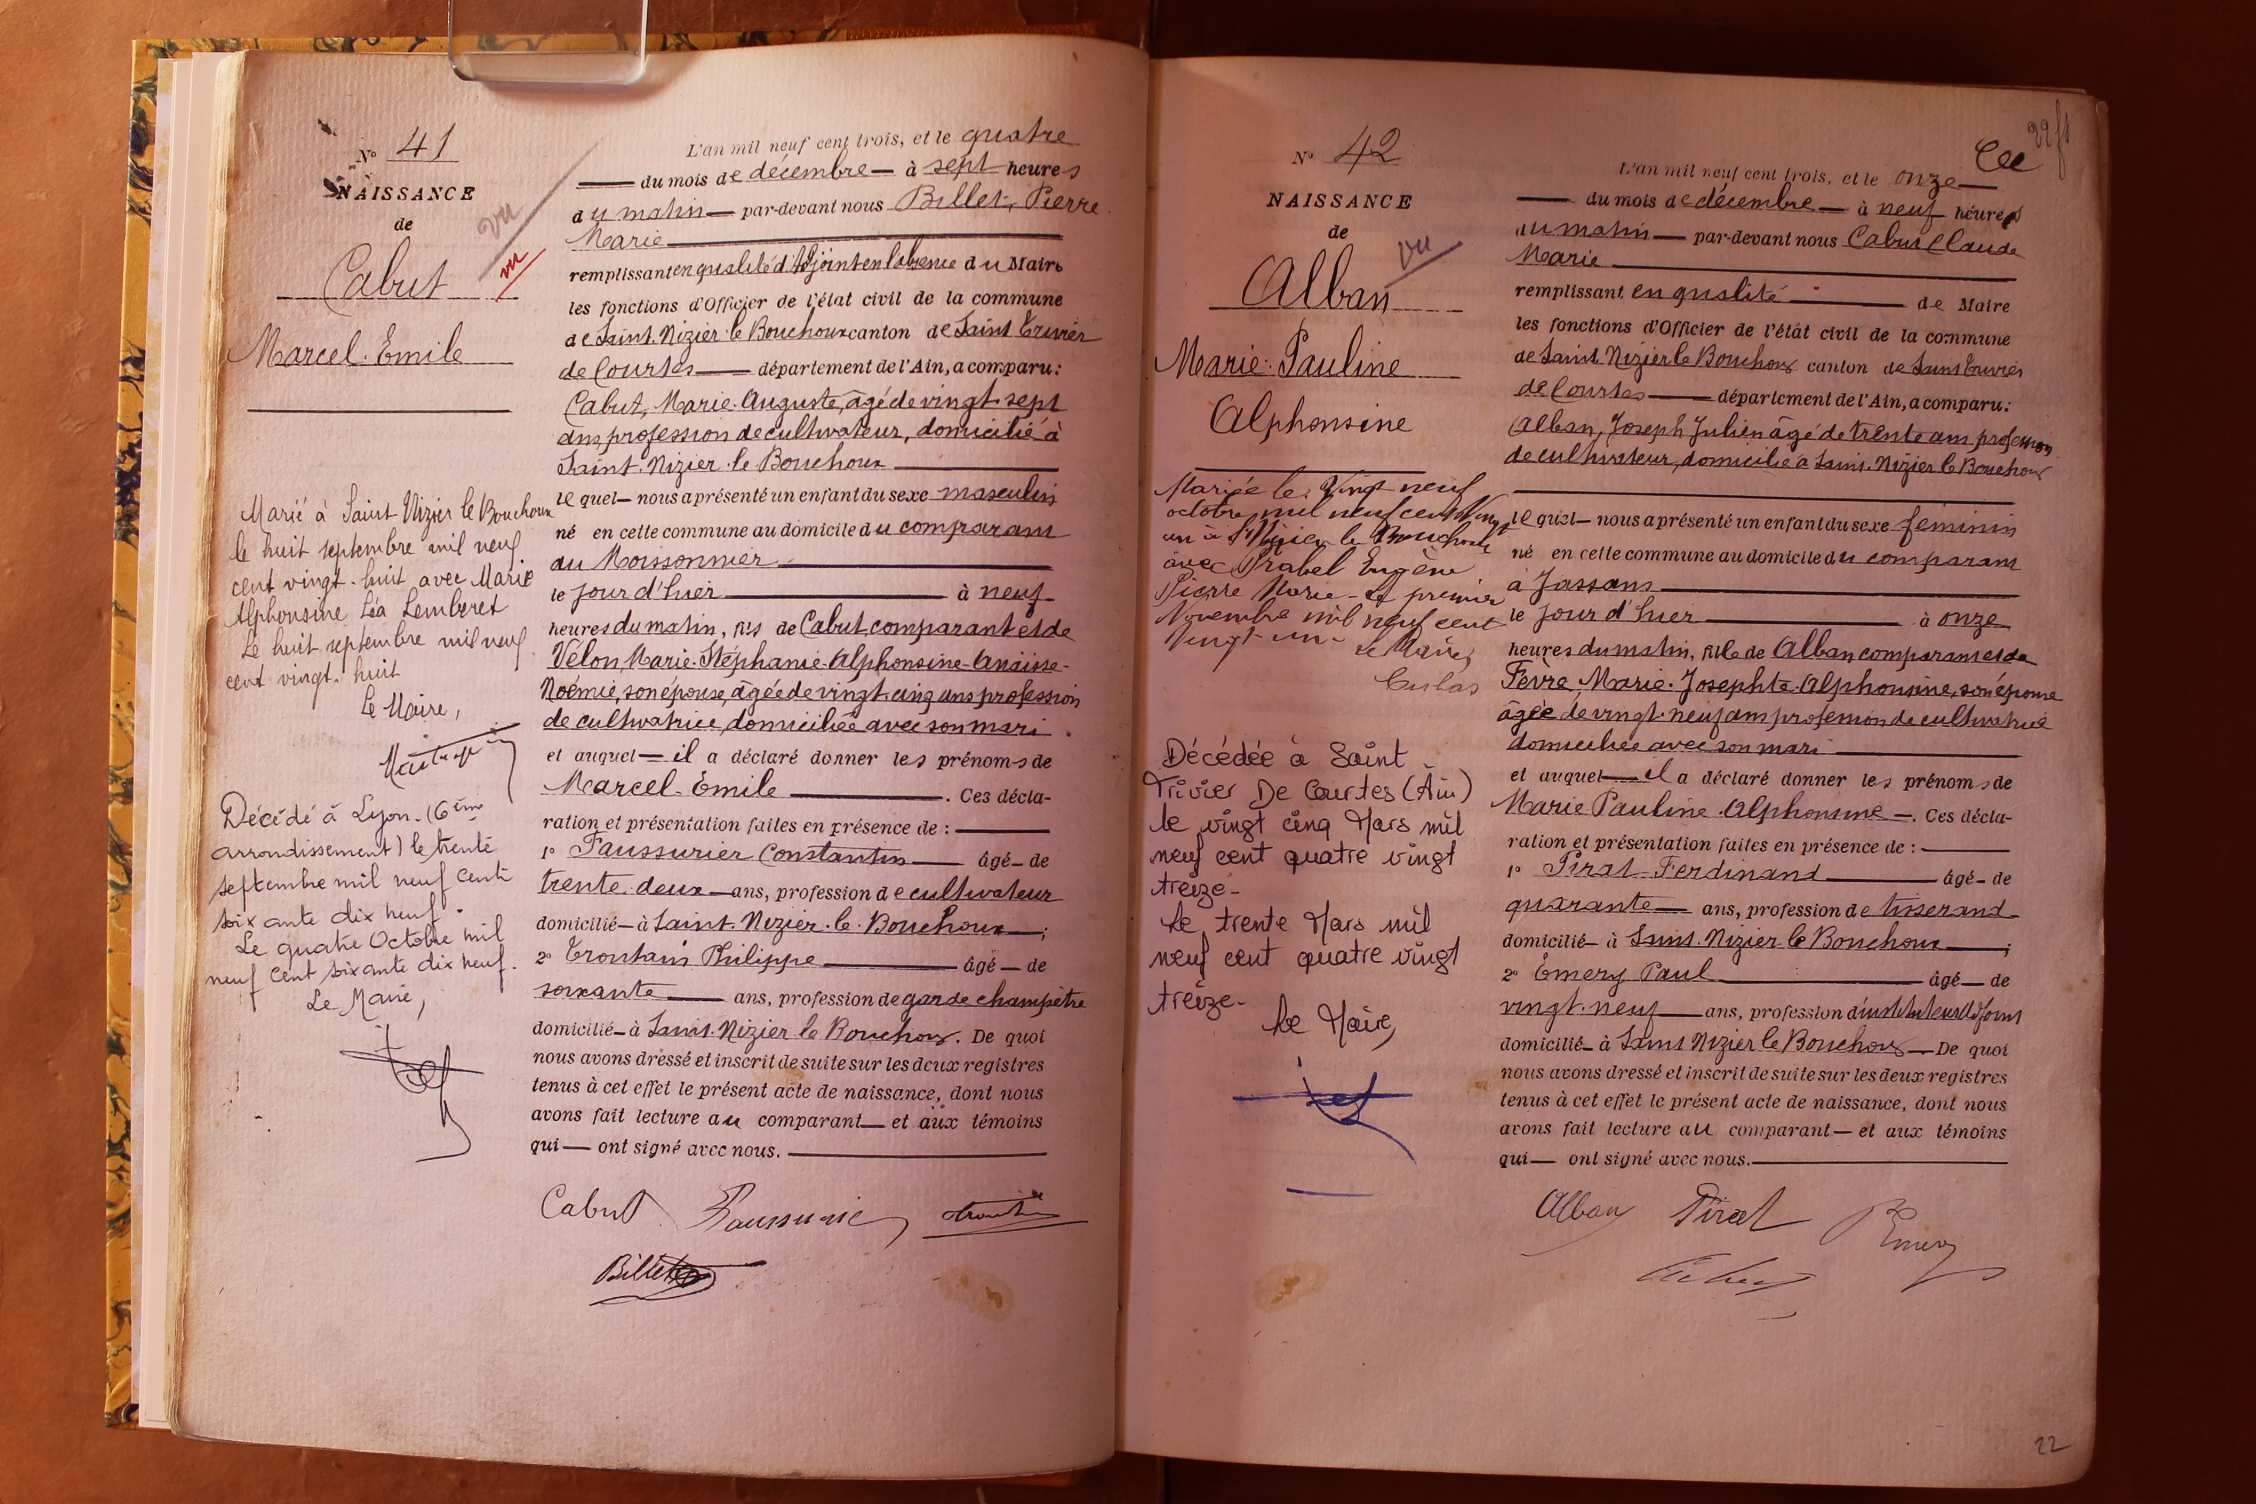 N° 41
NAISSANCE
de
Cabut
Marcel. Emile
vu
vu
Marié à Saint Nizier le Bouchoux
le huit septembre mil neuf
cent vingt-huit avec Marie
Alphonsine Léa Lemberet
Le huit septembre mil neuf
cent vingt-huit
Le Maire,
Décédé à Lyon-(6ème
arrondissement) le trente
septembre mil neuf cent
soixante dix neuf.
Le quatre Octobre mil
neuf cent soixante dix neuf.
Le Maire,
L'an mil neuf cent trois, et le quatre
du mois de décembre — à sept heures
du matin — par-devant nous Billet, Pierre
Marie
remplissant en qualité d'Adjoint en l'absence du Maire
les fonctions d'Officier de l'état civil de la commune
de Saint. Nizier le Bouchoux canton de Saint Trivier
de Courtes — département de l'Ain, a comparu:
Cabut, Marie. Auguste, âgé de vingt-sept
ans profession de cultivateur, domicilié à
Saint. Nizier le Bouchoux
lequel — nous a présenté un enfant du sexe masculin
né en cette commune au domicile du comparant
au Moissonnier
le jour d'hier — à neuf
heures du matin, fils de Cabut comparant et de
Vélon, Marie. Stéphanie. Alphonsine. Anaïsse-
Noémie, son épouse, âgée de vingt-cinq ans profession
de cultivatrice, domiciliée avec son mari.
et auquel — il a déclaré donner les prénoms de
Marcel. Emile — . Ces décla-
ration et présentation faites en présence de :
1° Faussurier Constantin — âgé — de
trente. deux — ans, profession de cultivateur
domicilié — à Saint. Nizier. le. Bouchoux — ;
2° Trontain Philippe — âgé — de
soixante — ans, profession de garde champêtre
domicilié — à Saint. Nizier le Bouchoux. De quoi
nous avons dressé et inscrit de suite sur les deux registres
tenus à cet effet le présent acte de naissance, dont nous
avons fait lecture au comparant — et aux témoins
qui — ont signé avec nous.
Cabut Faussurier
Billet
22
N° 42
NAISSANCE
de
Alban
Marie. Pauline
Alphonsine
vu
Mariée le Vingt neuf
octobre mil neuf cent vingt
un à St Nizier le Bouchoux
avec Prabel Eugène
Pierre Marie - Le premier
Novembre mil neuf cent
Vingt-un - Le Maire,
Décédée à Saint
Trivier De Courtes (Ain)
le vingt cinq Mars mil
neuf cent quatre vingt
treize-
Le trente Mars mil
neuf cent quatre vingt
treize-
Le Maire,
L'an mil neuf cent trois, et le onze
du mois de décembre — à neuf heures
du matin — par-devant nous Cabut Claude
Marie
remplissant en qualité — de Maire
les fonctions d'Officier de l'état civil de la commune
de Saint. Nizier le Bouchoux canton de Saint Trivier
de Courtes — département de l'Ain, a comparu:
Alban, Joseph Julien âgé de trente ans profession
de cultivateur, domicilié à Saint. Nizier le Bouchoux
lequel — nous a présenté un enfant du sexe féminin
né en cette commune au domicile du comparant
à Jassans
le jour d'hier — à onze
heures du matin, fille de Alban comparant et de
Fèvre, Marie. Josephte. Alphonsine, son épouse
âgée de vingt-neuf ans profession de cultivatrice
domiciliée avec son mari
et auquel — il a déclaré donner les prénoms de
Marie Pauline. Alphonsine — . Ces décla-
ration et présentation faites en présence de :
1° Pirat Ferdinand — âgé — de
quarante — ans, profession de tisserand
domicilié — à Saint. Nizier le Bouchoux — ;
2° Emery Paul — âgé — de
vingt-neuf — ans, profession d'instituteur adjoint
domicilié — à Saint Nizier le Bouchoux — De quoi
nous avons dressé et inscrit de suite sur les deux registres
tenus à cet effet le présent acte de naissance, dont nous
avons fait lecture au comparant — et aux témoins
qui — ont signé avec nous.
Alban Pirat Emery
22